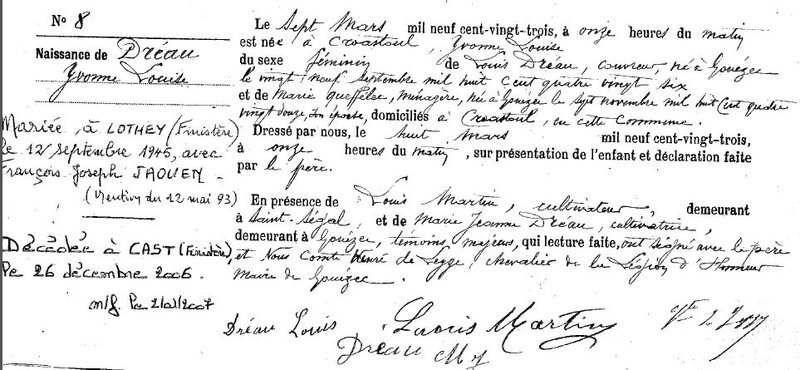 No 8
Naissance de Dréau
Yvonne Louise
Mariée, à LOTHEY (Finistère)
le 12 septembre 1945, avec
François Joseph JAOUEN
(Mention du 12 mai 93)
Décédée à CAST (Finistère)
le 26 décembre 2006.
Le Sept Mars mil neuf cent-vingt-trois, à onze heures du matin
est née à Croastoul, Yvonne Louise
du sexe féminin de Louis Dréau, couvreur, né à Gouézec
le vingt neuf Septembre mil huit cent quatre vingt six
et de Marie Queffélec, ménagère, née à Gouézec le sept novembre mil huit cent quatre
vingt douze, son épouse, domiciliés à Croastoul, en cette Commune.
Dressé par nous, le huit Mars mil neuf cent-vingt-trois,
à onze heures du matin, sur présentation de l'enfant et déclaration faite
par le père.
En présence de Louis Martin, cultivateur, demeurant
à Saint-Ségal, et de Marie Jeanne Dréau, cultivatrice,
demeurant à Gouézec, témoins majeurs, qui lecture faite, ont signé avec le père
et Nous Comte Henri de Legge, chevalier de la Légion d'Honneur
Maire de Gouézec.
Dréau Louis Louis Martin
Dréau M J